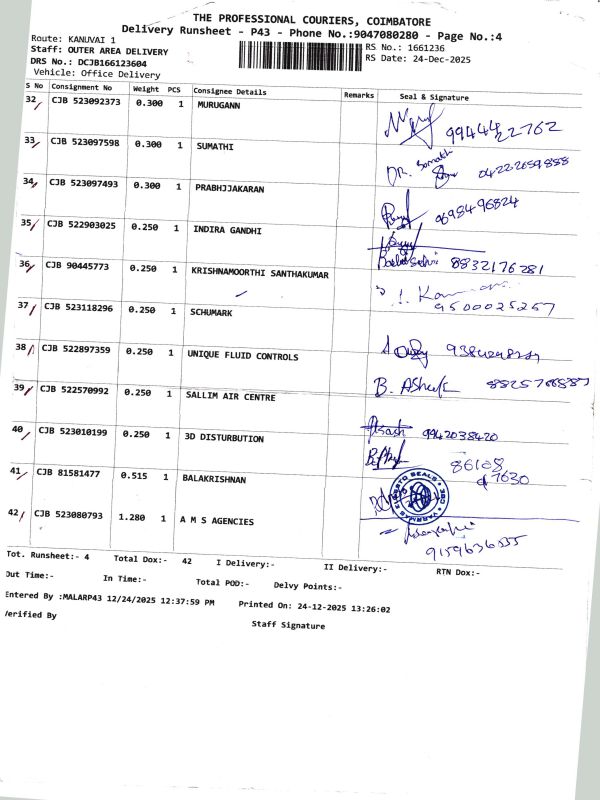 THE PROFESSIONAL COURIERS, COIMBATORE
Delivery Runsheet - P43 - Phone No.:9047080280 - Page No.:4
Route: KANUVAI 1
Staff: OUTER AREA DELIVERY
DRS No.: DCJB166123604
Vehicle: Office Delivery
RS No.: 1661236
RS Date: 24-Dec-2025
S No Consignment No Weight PCS Consignee Details Remarks Seal & Signature
32 CJB 523092373 0.300 1 MURUGANN 9944422762
33 CJB 523097598 0.300 1 SUMATHI DR. Sumathi 04222659888
34 CJB 523097493 0.300 1 PRABHJJAKARAN 9698496824
35 CJB 522903025 0.250 1 INDIRA GANDHI
36 CJB 90445773 0.250 1 KRISHNAMOORTHI SANTHAKUMAR 8832176281
37 CJB 523118296 0.250 1 SCHUMARK 9500025257
38 CJB 522897359 0.250 1 UNIQUE FLUID CONTROLS
39 CJB 522570992 0.250 1 SALLIM AIR CENTRE B. Ashok
40 CJB 523010199 0.250 1 3D DISTURBUTION 9942038420
41 CJB 81581477 0.515 1 BALAKRISHNAN
42 CJB 523080793 1.280 1 A M S AGENCIES 9159636555
Tot. Runsheet:- 4 Total Dox:- 42 I Delivery:- II Delivery:- RTN Dox:-
Out Time:- In Time:- Total POD:- Delvy Points:-
Entered By :MALARP43 12/24/2025 12:37:59 PM Printed On: 24-12-2025 13:26:02
Verified By Staff Signature